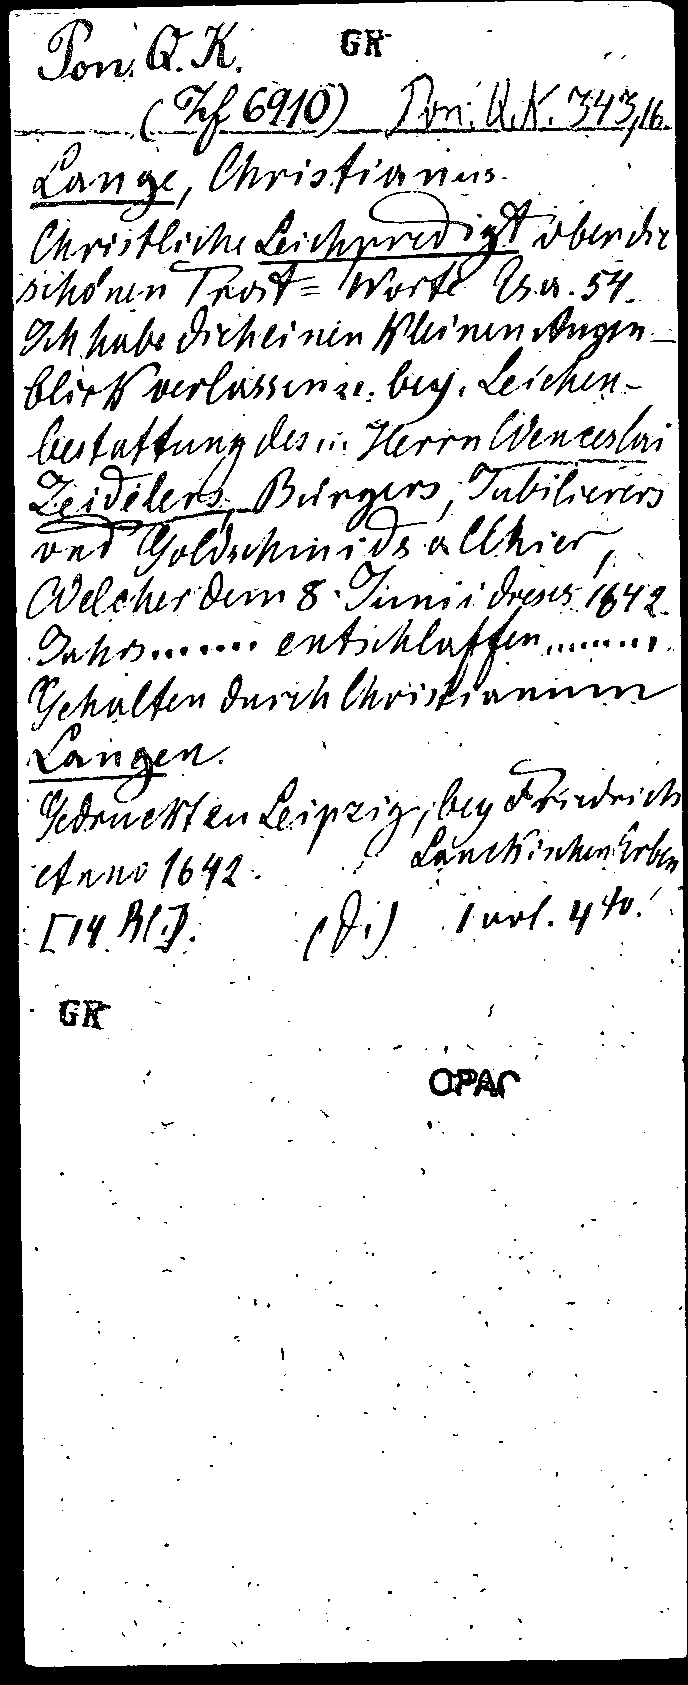 Pon. Q. K. GK
(Zf 6910) Pon. Q. K. 343,16.
Lange, Christianus.
Christliche Leichpredigt über die
schönen Trost= Worte Esa. 54.
Ich habe dich einen kleinen Augen-
blick verlassen ꝛc. bey. Leichen-
bestattung des ... Herrn Wenceslai
Zeidelers, Bürgers, Jubilierers
und Goldschmids allhier,
Welcher dem 8. Junii dieses 1642.
Jahrs....... entschlaffen........
Gehalten durch Christianum
Langen.
Gedruckt zu Leipzig, bey Friedrich
Lanckischen Erben
Anno 1642.
[14 Bl.]. (d.) 1 vol. 4to.
GK
OPAC